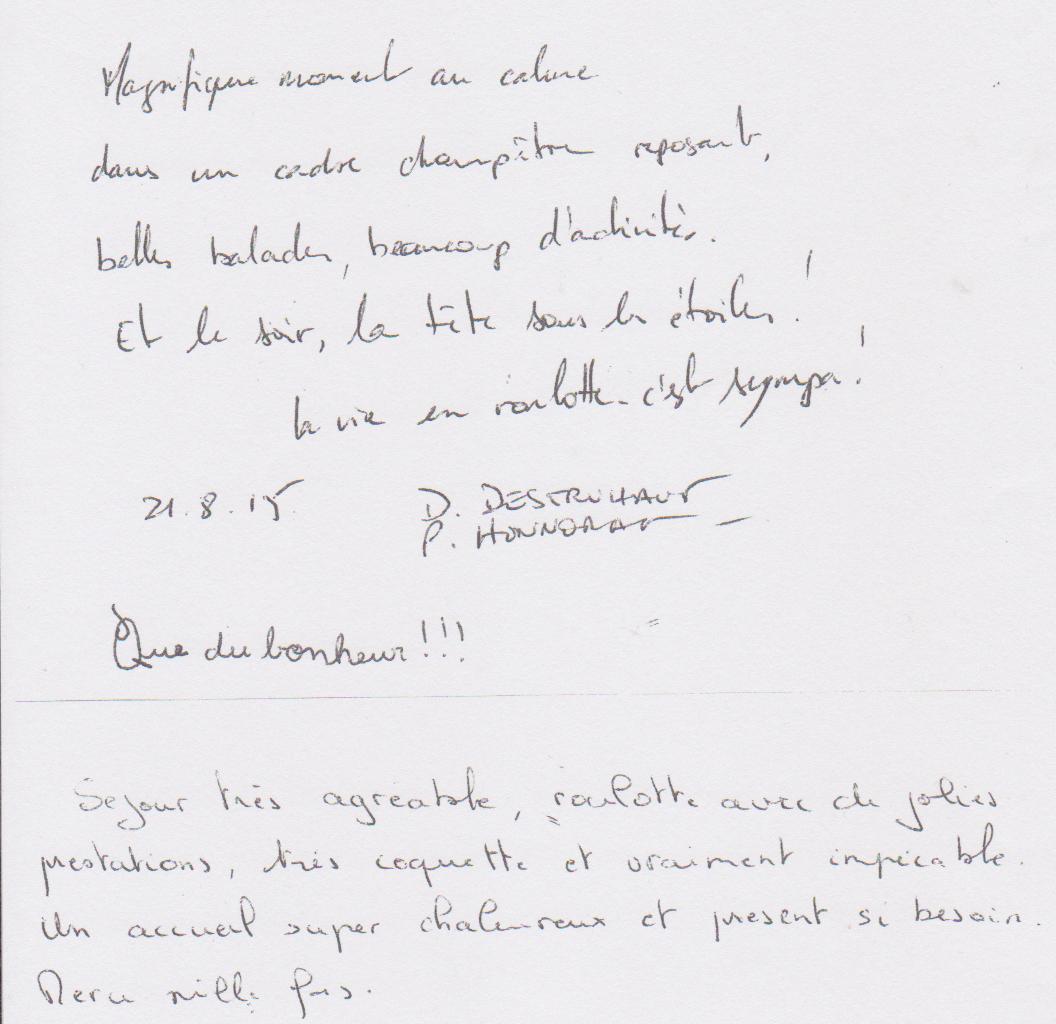 Magnifique moment au calme
dans un cadre champêtre reposant,
belles balades, beaucoup d'activités.
Et le soir, la tête sous les étoiles !
la vie en roulotte c'est sympa !
21.8.15 D. DESTRUHAUT
P. HONNORAT
Que du bonheur !!!
Séjour très agréable, roulotte avec de jolies
prestations, très coquette et vraiment impécable.
Un accueil super chaleureux et présent si besoin.
Merci mille fois.